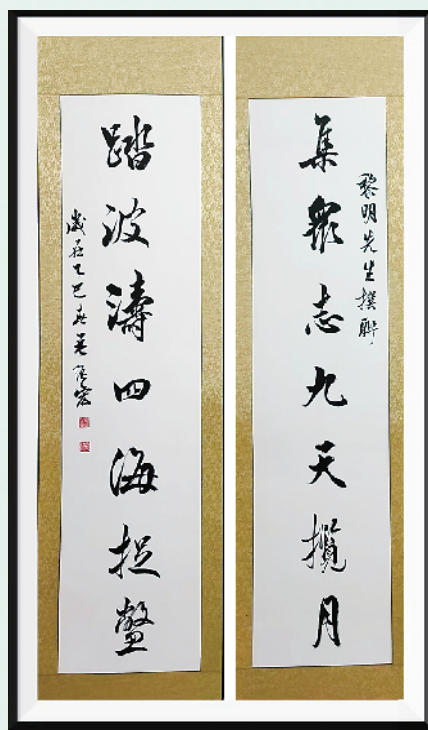 黎明先生撰聯
集眾志九天攬月
踏波濤四海捉鳖
歲在乙巳春